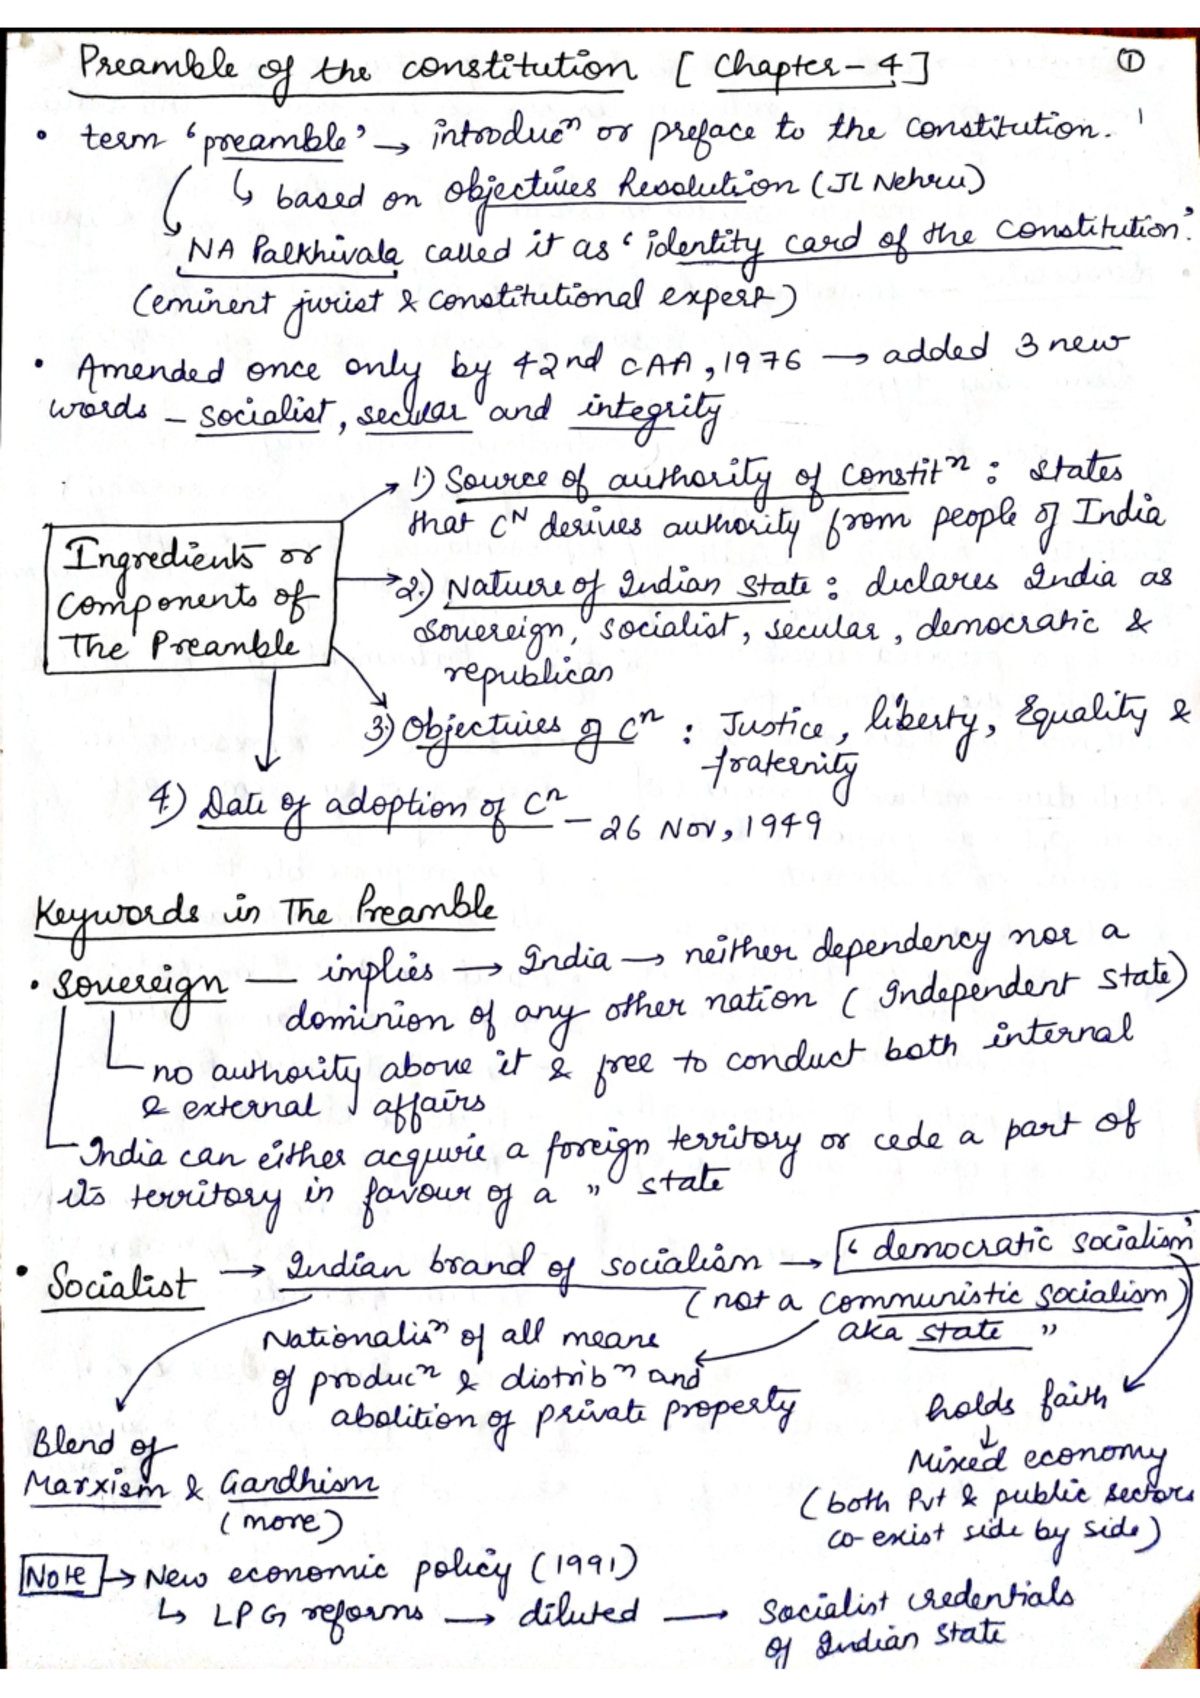 Preamble of the constitution [Chapter-4] ①
• term 'preamble' → introducⁿ or preface to the constitution.
↳ based on Objectives Resolution (JL Nehru)
NA Palkhivala called it as 'identity card of the constitution'.
(eminent jurist & constitutional expert)
• Amended once only by 42nd CAA, 1976 → added 3 new
words - socialist, secular and integrity
1.) Source of authority of Constitⁿ : states
that Cᴺ derives authority from people of India
Ingredients or
components of
The Preamble
2.) Nature of Indian State : declares India as
sovereign, socialist, secular, democratic &
republican
3.) Objectives of Cⁿ : Justice, liberty, Equality &
fraternity
4.) Date of adoption of Cⁿ - 26 Nov, 1949
Keywords in The Preamble
• Sovereign — implies → India → neither dependency nor a
dominion of any other nation (Independent state)
no authority above it & free to conduct both internal
& external affairs
India can either acquire a foreign territory or cede a part of
its territory in favour of a " state
• Socialist → Indian brand of socialism → 'democratic socialism'
(not a communistic socialism)
aka state "
Nationalisⁿ of all means
of producⁿ & distribⁿ and
abolition of private property
holds faith
↓
Blend of
Marxism & Gandhism
(more)
Mixed economy
(both Pvt & public sectors
co-exist side by side)
Note → New economic policy (1991)
↳ LPG reforms → diluted → Socialist credentials
of Indian State